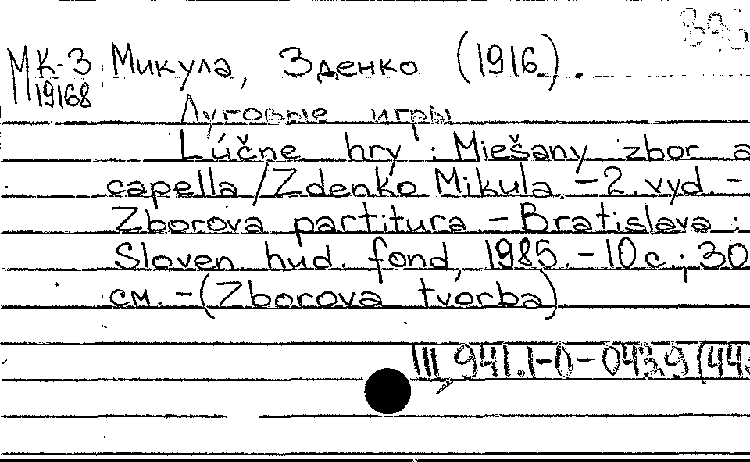 МК-3 Микула, Зденко (1916 ).
19168
Луговые игры
Lúčne hry : Miešany zbor a
capella / Zdenko Mikula. - 2. vyd. -
Zborova partitura - Bratislava :
Sloven hud. fond, 1985. - 10 с ; 30
см. - (Zborova tvorba)
III, 941.1-0-043.9 (44